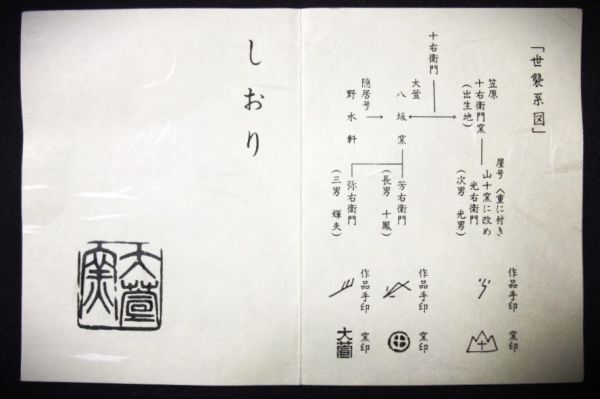 「世襲系図」
十右衛門
笠原
十右衛門窯
(出生地)
屋号 〈重に付き
山十窯に改め
光右衛門
(次男 光男)
大萱
八坂窯
隠居号
野水軒
芳右衛門
(長男 十鳳)
弥右衛門
(三男 輝夫)
作品手印
窯印
作品手印
窯印
作品手印
窯印
大萱
しおり
大萱
窯